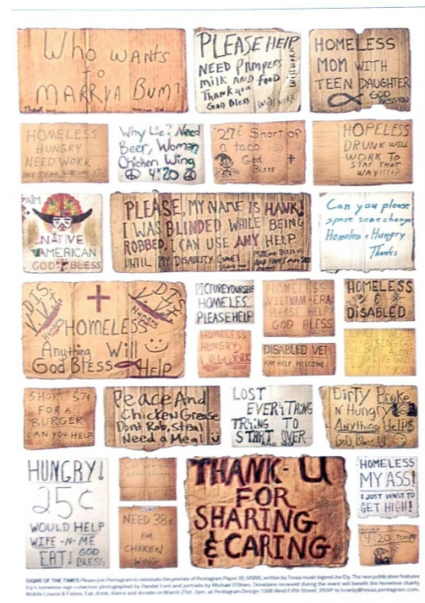 Who WANTS
to
MARRY A BUM?
PLEASE HELP
NEED PAMPERS
MILK AND FOOD
Thank you
God Bless
HOMELESS
MOM WITH
TEEN DAUGHTER
GOD
BLESS YOU
HOMELESS
HUNGRY
NEED WORK
Why Lie? Need
Beer, Woman
Chicken Wing
4:20
27¢ Short of
a taco
God
Bless
HOPELESS
DRUNK WILL
WORK TO
STAY THAT
WAY!!!!
AIM
NATIVE
AMERICAN
GOD BLESS
PLEASE, MY NAME IS HANK!
I WAS BLINDED WHILE BEING
ROBBED. I CAN USE ANY HELP
UNTIL MY DISABILITY COMES
Can you please
spare some change
Homeless & Hungry
Thanks
HOMELESS
Anything Will
God Bless Help
PICTURE YOURSELF
HOMELESS
PLEASE HELP
HOMELESS
VIETNAM-ERA
PLEASE HELP
GOD BLESS
HOMELESS
&
DISABLED
HOMELESS
HUNGRY
DISABLED VET
ANY HELP WELCOME
SHORT 57¢
FOR A
BURGER
CAN YOU HELP
Peace And
Chicken Grease
Dont Rob, Steal
Need a Meal
LOST
EVERYTHING
TRYING TO
START OVER
Dirty Broke
N' Hungry
Anything Helps
God Bless U
HUNGRY!
25¢
WOULD HELP
WIFE-N-ME
EAT! GOD
BLESS
NEED 38¢
FOR
CHICKEN
WING
THANK-U
FOR
SHARING
& CARING
HOMELESS
MY ASS!
I JUST WANT TO
GET HIGH!
4:20 time
SIGNS OF THE TIMES Please join Pentagram to celebrate the premier of Pentagram Paper 39, SIGNS, written by Texas music legend Joe Ely. The new publication features
Ely's homeless sign collection photographed by Randal Ford and portraits by Michael O'Brien. Donations received during the event will benefit the homeless charity
Mobile Loaves & Fishes. Eat, drink, dance and donate on March 21st, 7 pm, at Pentagram Design 1508 West Fifth Street. RSVP to howdy@texas.pentagram.com.